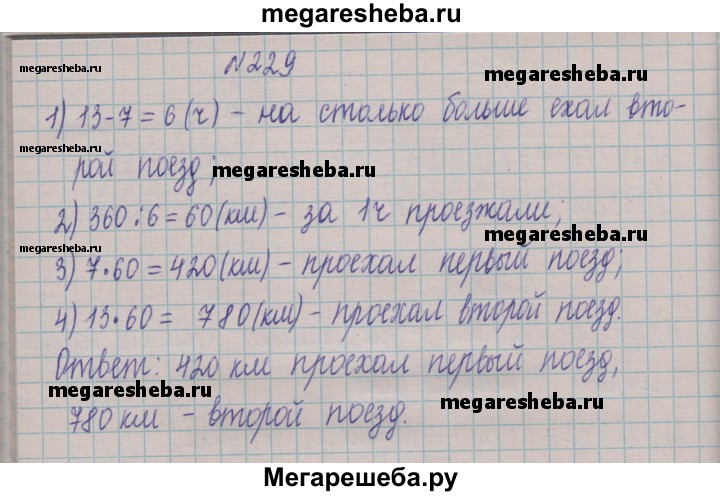 megaresheba.ru
№229
megaresheba.ru
megaresheba.ru
1) 13-7=6(ч) - на столько больше ехал вто-
megaresheba.ru
рой поезд;
megaresheba.ru
2) 360:6=60(км) - за 1ч проезжали;
megaresheba.ru
megaresheba.ru
3) 7·60=420(км) - проехал первый поезд;
4) 13·60= 780(км) - проехал второй поезд.
megaresheba.ru
Ответ: 420 км проехал первый поезд,
780 км - второй поезд.
megaresheba.ru
Мегарешеба.ру